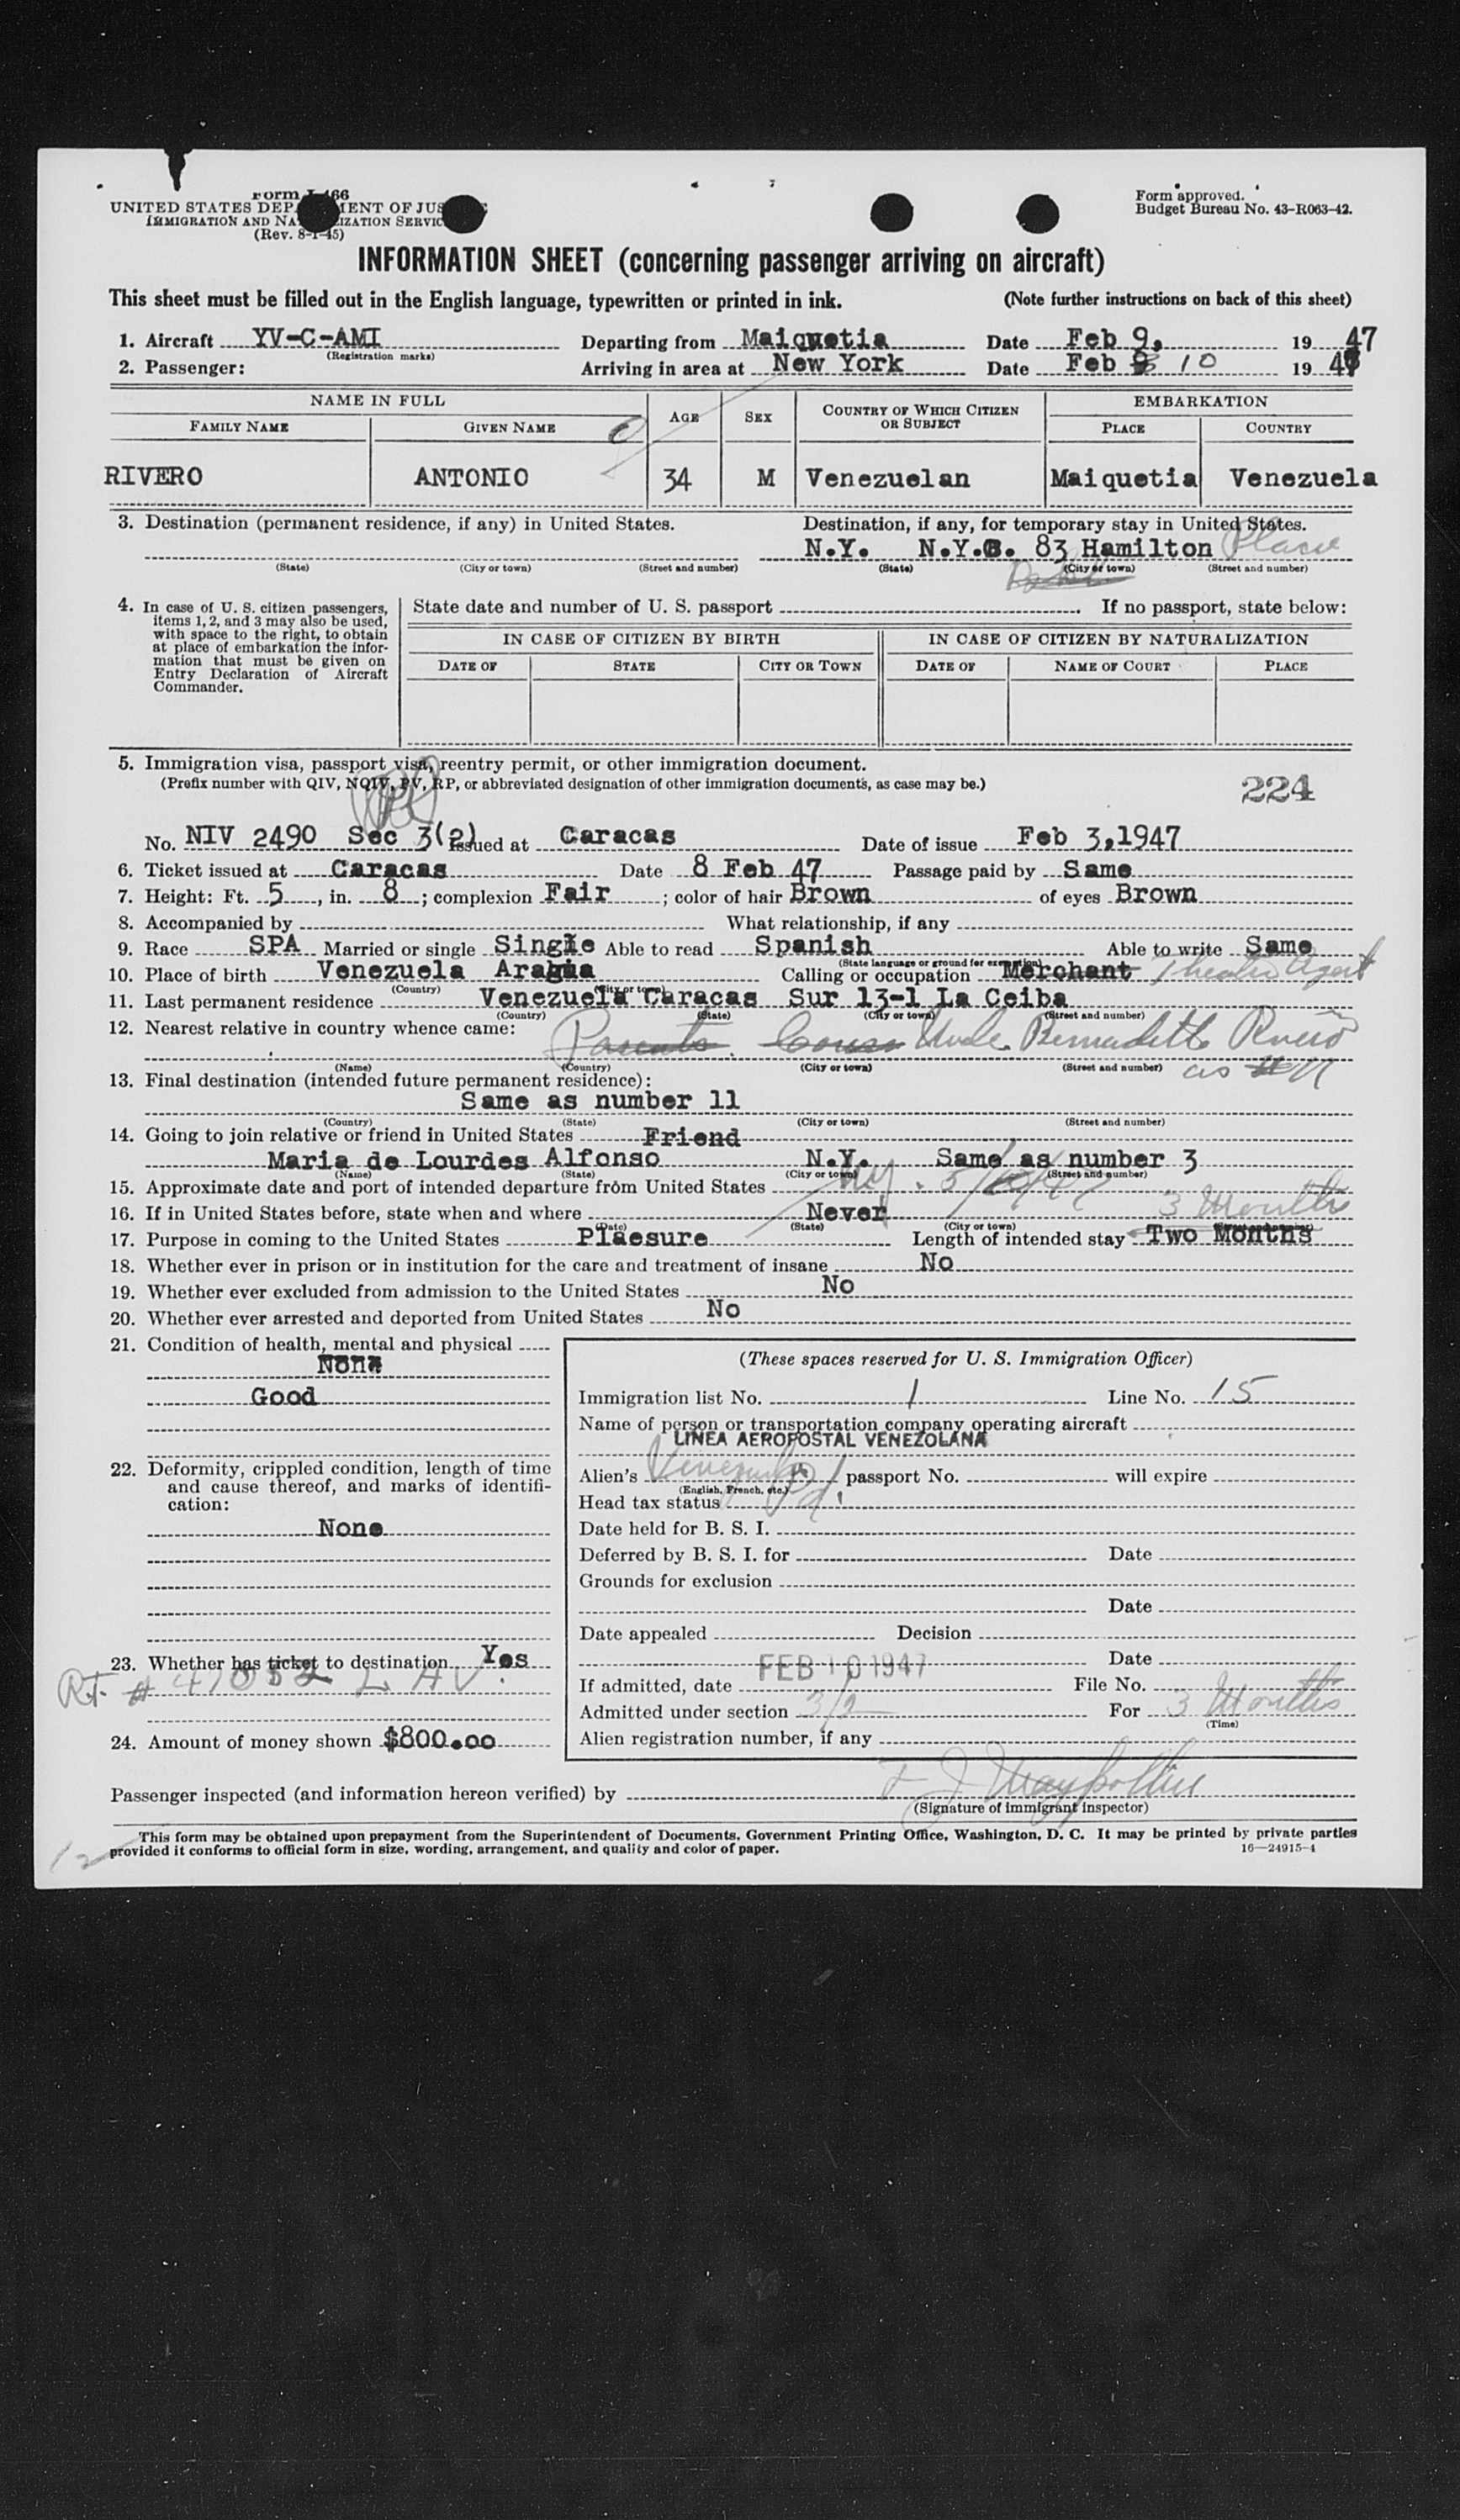 Form I-466
UNITED STATES DEPARTMENT OF JUSTICE
IMMIGRATION AND NATURALIZATION SERVICE
(Rev. 8-1-45)
Form approved.
Budget Bureau No. 43-R063-42.
INFORMATION SHEET (concerning passenger arriving on aircraft)
This sheet must be filled out in the English language, typewritten or printed in ink. (Note further instructions on back of this sheet)
1. Aircraft YV-C-AMI Departing from Maiquetia Date Feb 9, 19 47
(Registration marks)
2. Passenger: Arriving in area at New York Date Feb 10 19 47
NAME IN FULL AGE SEX COUNTRY OF WHICH CITIZEN OR SUBJECT EMBARKATION
FAMILY NAME GIVEN NAME PLACE COUNTRY
RIVERO ANTONIO 34 M Venezuelan Maiquetia Venezuela
3. Destination (permanent residence, if any) in United States. Destination, if any, for temporary stay in United States.
N.Y. N.Y.C. 83 Hamilton Place
(State) (City or town) (Street and number) (State) (City or town) (Street and number)
4. In case of U. S. citizen passengers, items 1, 2, and 3 may also be used, with space to the right, to obtain at place of embarkation the information that must be given on Entry Declaration of Aircraft Commander.
State date and number of U. S. passport If no passport, state below:
IN CASE OF CITIZEN BY BIRTH IN CASE OF CITIZEN BY NATURALIZATION
DATE OF STATE CITY OR TOWN DATE OF NAME OF COURT PLACE
5. Immigration visa, passport visa, reentry permit, or other immigration document.
(Prefix number with QIV, NQIV, PV, RP, or abbreviated designation of other immigration documents, as case may be.)
224
No. NIV 2490 Sec 3(2) Issued at Caracas Date of issue Feb 3,1947
6. Ticket issued at Caracas Date 8 Feb 47 Passage paid by Same
7. Height: Ft. 5, in. 8; complexion Fair; color of hair Brown of eyes Brown
8. Accompanied by What relationship, if any
9. Race SPA Married or single Single Able to read Spanish Able to write Same
(State language or ground for exemption)
10. Place of birth Venezuela Aragua Calling or occupation Merchant Theatre Agent
(Country) (City or town)
11. Last permanent residence Venezuela Caracas Sur 13-1 La Ceiba
(Country) (State) (City or town) (Street and number)
12. Nearest relative in country whence came:
Parents Uncle Bernadetto Rivero
as #11
(Name) (Country) (City or town) (Street and number)
13. Final destination (intended future permanent residence):
Same as number 11
(Country) (State) (City or town) (Street and number)
14. Going to join relative or friend in United States Friend
Maria de Lourdes Alfonso N.Y. Same as number 3
(Name) (State) (City or town) (Street and number)
15. Approximate date and port of intended departure from United States NY. 5/10/47
16. If in United States before, state when and where Never
(Date) (State) (City or town) (Street and number)
3 Months
17. Purpose in coming to the United States Plaesure Length of intended stay Two Months
18. Whether ever in prison or in institution for the care and treatment of insane No
19. Whether ever excluded from admission to the United States No
20. Whether ever arrested and deported from United States No
21. Condition of health, mental and physical
None
Good
22. Deformity, crippled condition, length of time and cause thereof, and marks of identification:
None
23. Whether has ticket to destination Yes
R.T. # 41052 LAV.
24. Amount of money shown $800.00
(These spaces reserved for U. S. Immigration Officer)
Immigration list No. 1 Line No. 15
Name of person or transportation company operating aircraft
LINEA AEROPOSTAL VENEZOLANA
Alien's passport No. will expire
(English, French, etc.)
Head tax status
Date held for B. S. I.
Deferred by B. S. I. for Date
Grounds for exclusion
Date
Date appealed Decision
Date
If admitted, date FEB 10 1947 File No.
Admitted under section 3/2 For 3 Months
(Time)
Alien registration number, if any
Passenger inspected (and information hereon verified) by
(Signature of immigrant inspector)
This form may be obtained upon prepayment from the Superintendent of Documents, Government Printing Office, Washington, D. C. It may be printed by private parties
provided it conforms to official form in size, wording, arrangement, and quality and color of paper.
16—24915-4
12